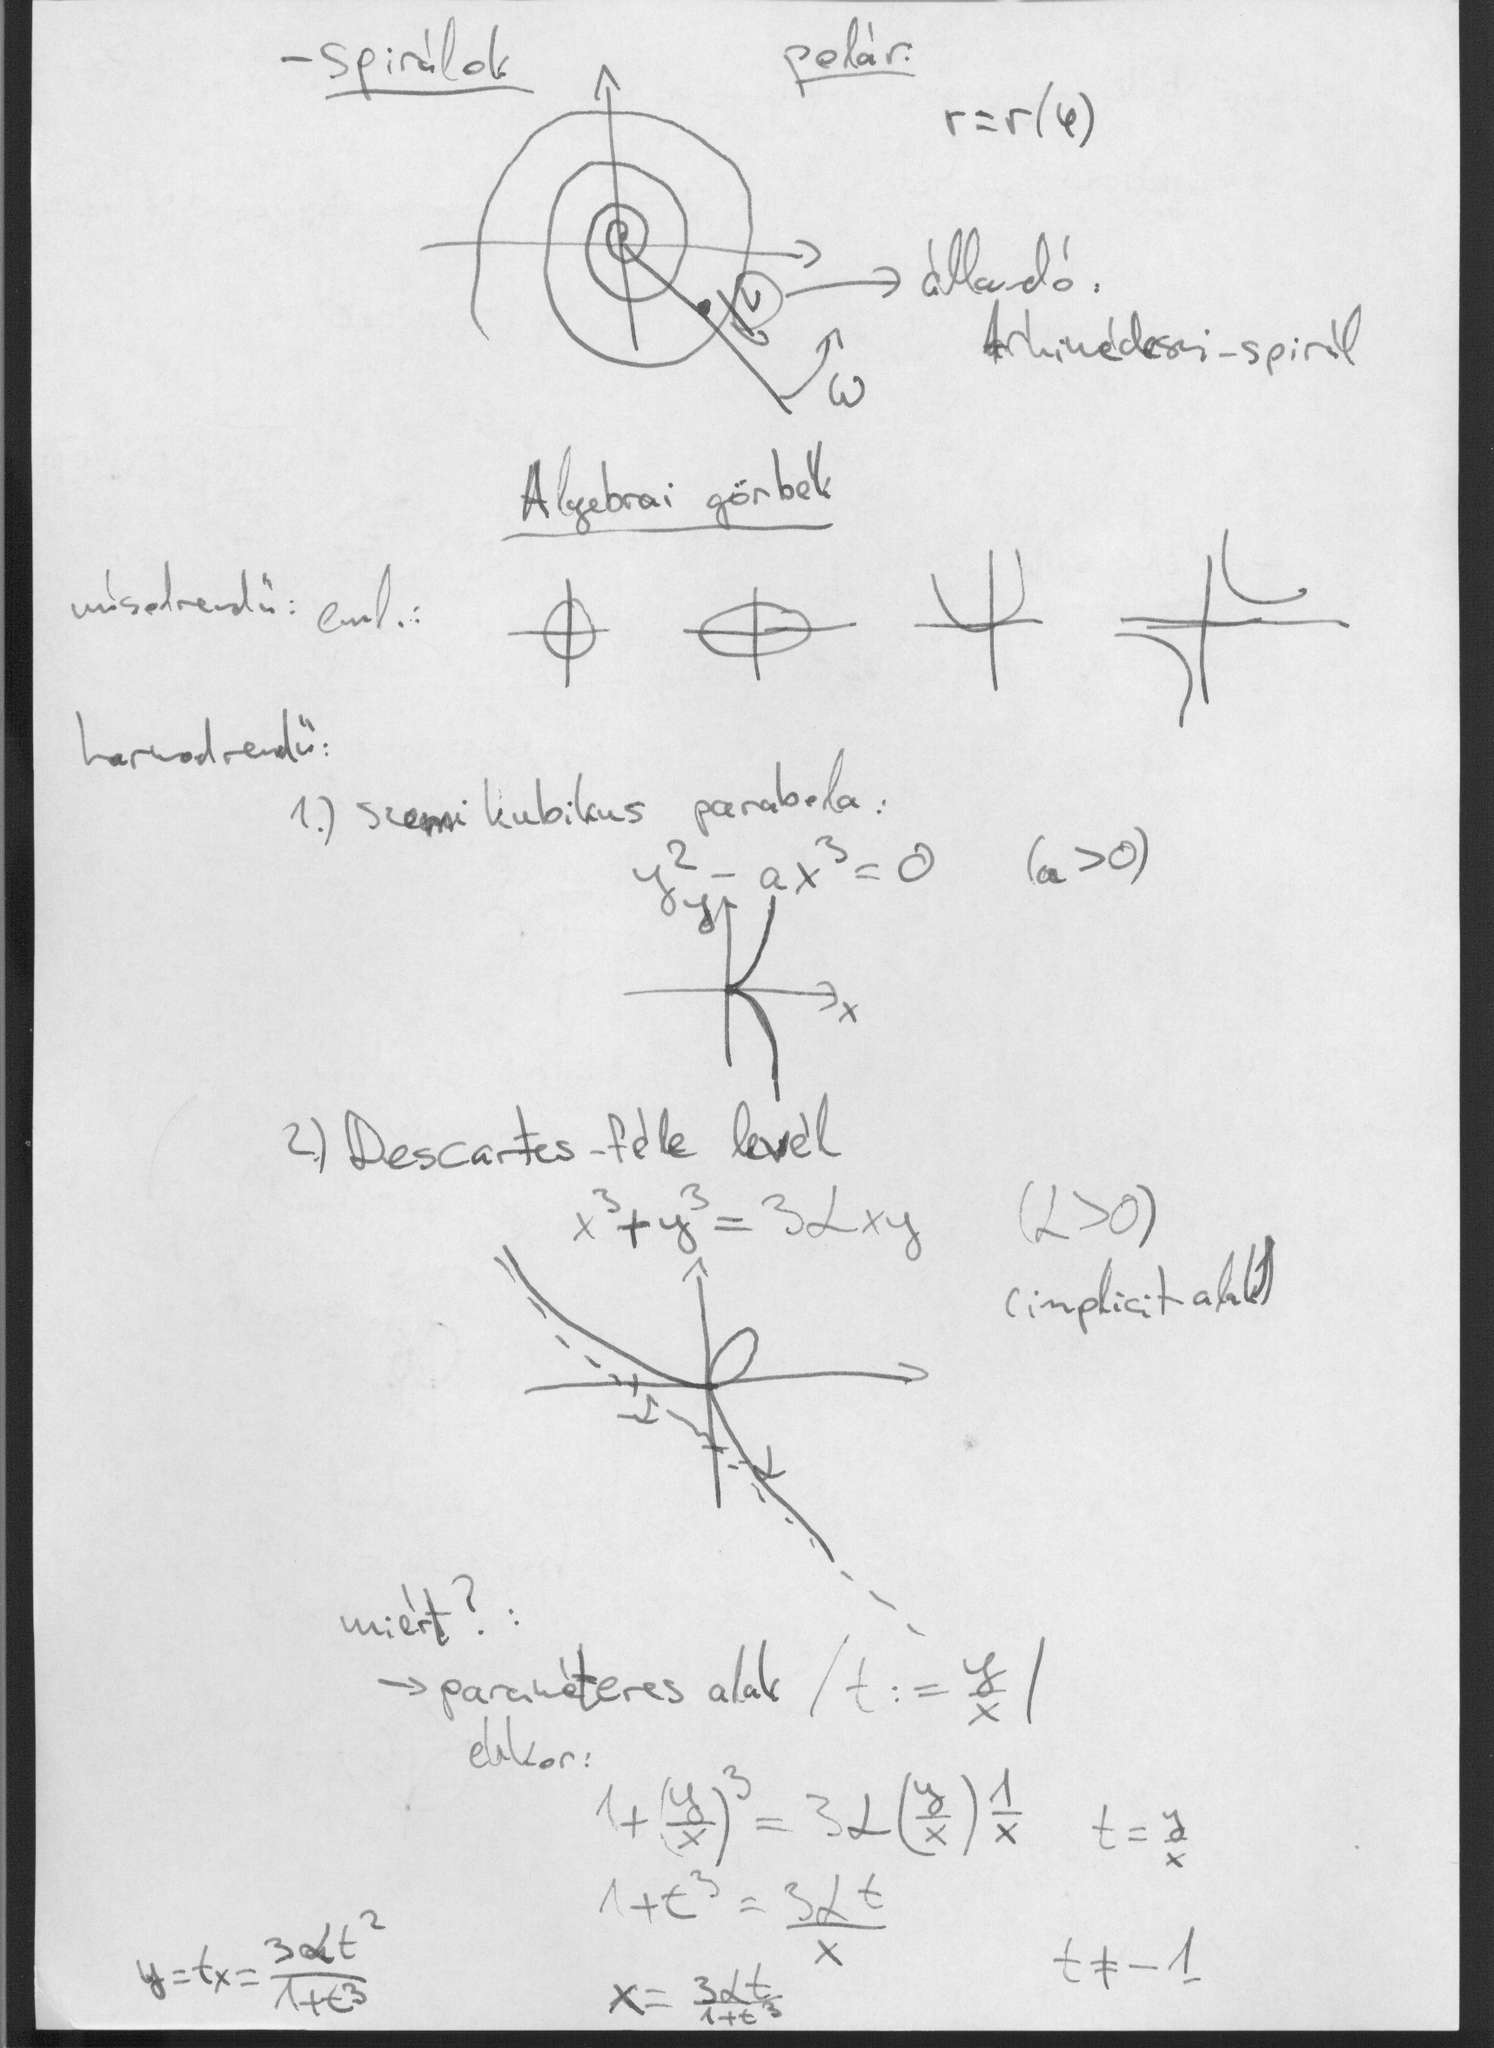 - spirálok
polár:
r=r(φ)
v → állandó:
Arhimédeszi-spirál
ω
Algebrai görbék
másodrendű: eml.:
harmadrendű:
1.) szemikubikus parabola:
y² - ax³ = 0 (a>0)
y
x
2.) Descartes-féle levél
x³+y³ = 3αxy (α>0)
(implicit alak)
miért?:
→ paraméteres alak / t := y/x /
ekkor:
1+(y/x)³ = 3α(y/x) 1/x t = y/x
1+t³ = 3αt/x
t ≠ -1
y=tx= 3αt²/1+t³
x= 3αt/1+t³